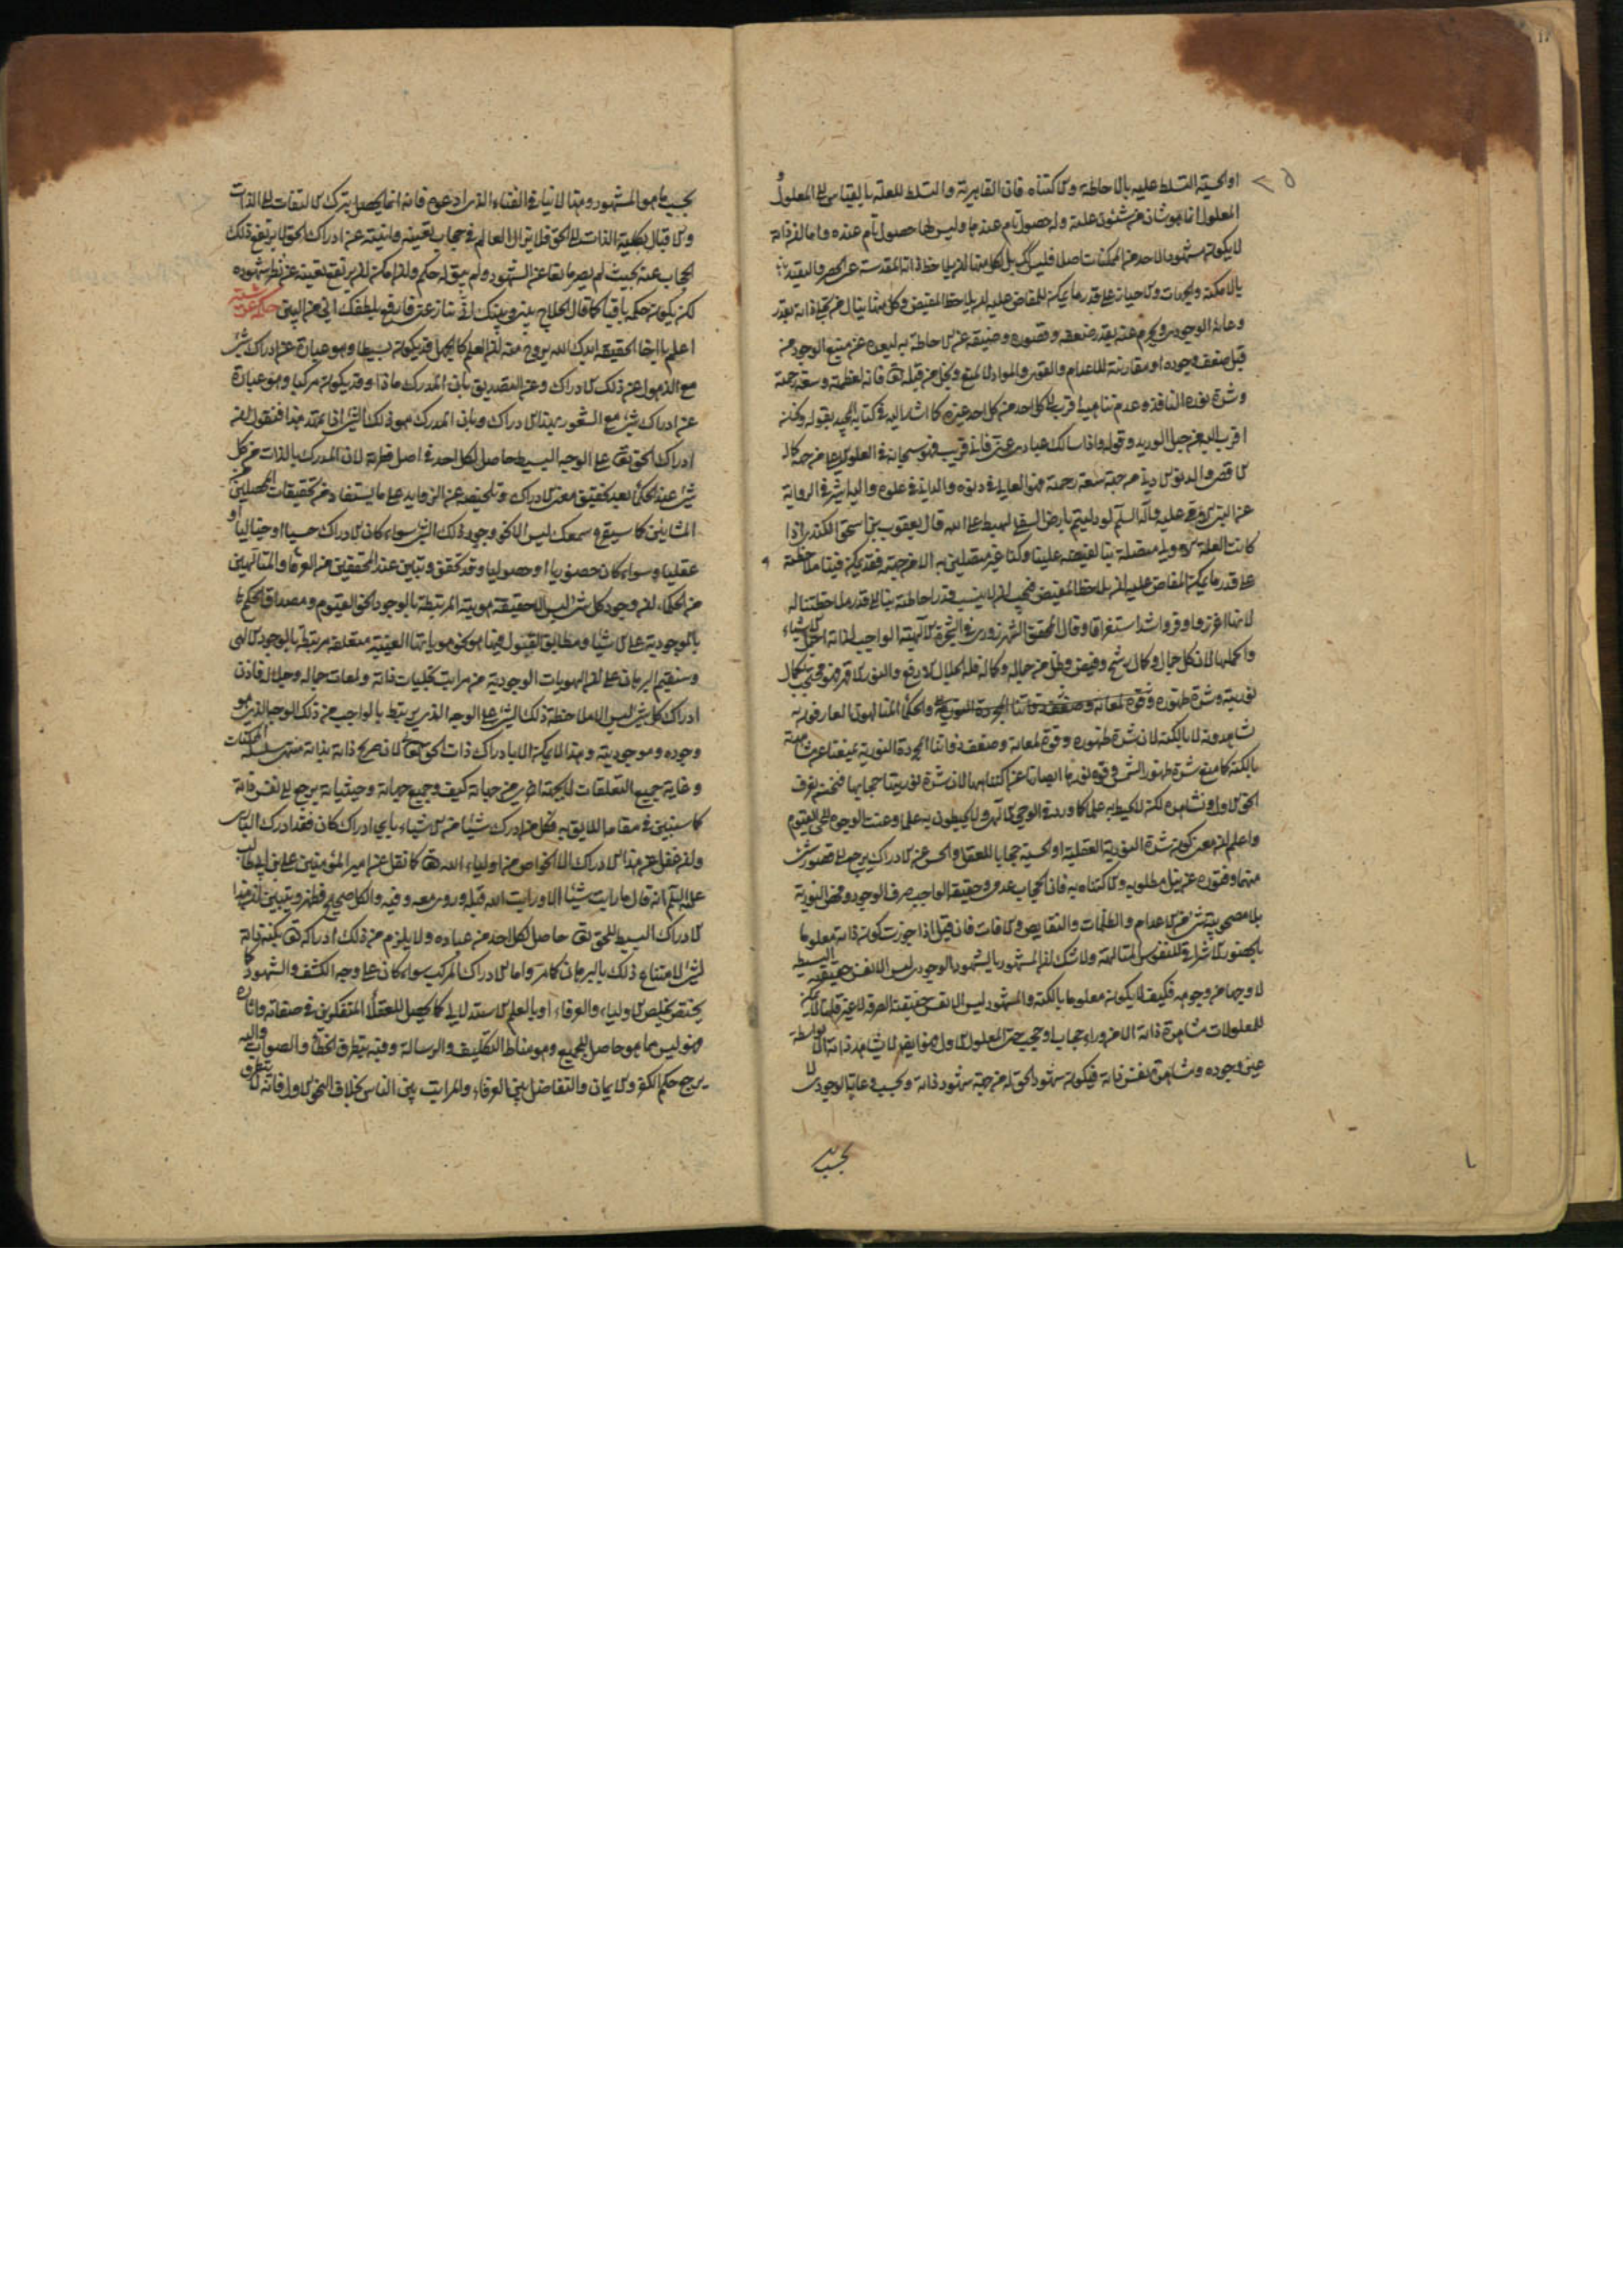 او الحسية التسلط عليه بالاحاطة والاكتناه فان القاهرية والتسلط للعلة بالقياس الى المعلول و
المعلول انما هو شان من شئون علته وله حصول تام عندها وليس لها حصول تام عنده واما ان ذاته
لا يكون مشهودا لاحد من الممكنات اصلا فليس كك بل لكل منها ان يلاحظ ذاته المقدسة عن الحصر والتقييد
بالامكنة والجهات والاحياز على قدر ما يمكن للمفاض عليه ان يلاحظ المفيض وكل منها ينال من تجلى ذاته بقدر
وعائه الوجودى ويحرم عنه بقدر ضعفه وقصوره وضيقه عن الاحاطة به لبعده عن منبع الوجود من
قبل ضعف وجوده او مقارنته للاعدام والقوى والمواد لا لمنع وبخل من قبله تعالى فانه لعظمته وسعة رحمته
وشدة نوره النافذ وعدم تناهيه اقرب الى كل احد من كل احد غيره كما اشار اليه فى كتابه المجيد بقوله ونحن
اقرب اليه من حبل الوريد وقوله واذا سالك عبادى عنى فانى قريب فهو سبحانه فى العلو الاعلى من جهة كماله
الاقصى والدنو الادنى من جهة سعة رحمته فهو العالى فى دنوه والدانى فى علوه واليه اشير فى الرواية
عن النبى صلى الله عليه وآله السلم لو دليتم بارض السفلى لهبط على الله قال يعقوب بن اسحق الكندى اذا
كانت العلة الاولى متصلة بنا لفيضه علينا وكنا غير متصلين به الا من جهته فقد يمكن فينا ملاحظته
على قدر ما يمكن للمفاض عليه ان يلاحظ المفيض فيجب ان لا ينسب قدر احاطته بنا الى قدر ملاحظتنا له
لانها اغزر واوفر واشد استغراقا وقال المحقق الشهرزورى فى الشجرة الالهية الواجب لذاته اجمل الاشياء
واكملها لان كل جمال وكمال رشح وفيض وظل من جماله وكماله فله الجلال الارفع والنور الاقهر فهو محتجب بكمال
نوريته وشدة ظهوره والحكماء المتالهون العارفون به
شاهدونه لا بالكنه لان شدة ظهوره وقوة لمعانه وضعف ذواتنا المجردة النورية يمنعنا عن مشاهدته
بالكنه كما منع شدة ظهور الشمس وقوة نورها ابصارنا عن اكتناهها لان شدة نوريتها حجابها فنحن نعرف
الحق الاول ونشاهده لكن لا نحيط به علما كما ورد فى الوحى الالهى ولا يحيطون به علما وعنت الوجوه للحى القيوم
واعلم ان معنى كون شدة النورية العقلية او الحسية حجابا للعقل والحس عن الادراك يرجع الى قصور شئ
منهما وفتوره عن نيل مطلوبه والاكتناه به فان الحجاب عدمى وحقيقة الواجب صرف الوجود ومحض النورية
بلا مصحوبية شئ من الاعدام والظلمات والنقايص والافات فان قيل اذا جوزت كون ذاته معلوما
بالحضور الاشراقى للنفوس المتالهة ولا شك ان المشهود بالشهود الوجودى ليس الا نفس حقيقته البسيطة
لا وجها من وجوهه فكيف لا يكون معلوما بالكنه والمشهود ليس الا نفس حقيقته الصرفة لا غير قلنا لا يمكن
للمعلولات مشاهدة ذاته الا من وراء حجاب او حجب حتى المعلول الاول فهو ايضا لا يشاهد ذاته الا بواسطة
عين وجوده ومشاهدة نفس ذاته فيكون شهود الحق له من جهة شهود ذاته وبحسب وعائه الوجودى لا
بحسب
بحسب ما هو المشهود وهذا لا ينافى الفناء الذى ادعوه فانه انما يحصل بترك الالتفات الى الذات
والاقبال بكلية الذات الى الحق فلا يزال العالم فى حجاب تعينه وانيته عن ادراك الحق لا يرتفع ذلك
الحجاب عنه بحيث لم يصر مانعا عن الشهود ولم يبق له حكم وان امكن ان يرتفع تعينه عن نظر شهوده
لكن يكون حكمه باقيا كما قال الحلاج بينى وبينك انى ينازعنى فارفع بلطفك انى من البين حكمة عرشية
اعلم يا اخا الحقيقة ايدك الله بروح منه ان العلم كالجهل قد يكون بسيطا وهو عبارة عن ادراك شئ
مع الذهول عن ذلك الادراك وعن التصديق بان المدرك ماذا وقد يكون مركبا وهو عبارة
عن ادراك شئ مع الشعور بهذا الادراك وبان المدرك هو ذلك الشئ اذا تمهد هذا فنقول ان
ادراك الحق تعالى على الوجه البسيط حاصل لكل احد فى اصل فطرته لان المدرك بالذات من كل
شئ عند الحكماء بعد تحقيق معنى الادراك وتلخيصه عن الزوايد على ما يستفاد من تحقيقات المحصلين من
المشائين كما سيقرع سمعك ليس الا نحو وجود ذلك الشئ سواء كان الادراك حسيا او خياليا او
عقليا وسواء كان حضوريا او حصوليا وقد تحقق وتبين عند المحققين من العرفاء والمتالهين
من الحكماء ان وجود كل شئ ليس الا حقيقة هويته المرتبطة بالوجود الحق القيوم ومصداق الحكم
بالموجودية على الاشياء ومطابق القول فيها هو نحو هوياتها العينية متعلقة مرتبطة بالوجود الالهى
وسنقيم البرهان على ان الهويات الوجودية من مراتب تجليات ذاته ولمعات جماله وجلاله فاذن
ادراك كل شئ ليس الا ملاحظة ذلك الشئ على الوجه الذى يرتبط بالواجب من ذلك الوجه الذى هو
وجوده وموجوديته وهذا لا يمكن الا بادراك ذات الحق تعالى لان صريح ذاته بذاته منتهى سلسلة الممكنات
وغاية جميع التعلقات لا بجهة اخرى من جهاته كيف وجميع جهاته وحيثياته يرجع الى نفس ذاته
كما سنبين فى مقامه اللايق به فكل من ادرك شيئا من الاشياء باى ادراك كان فقد ادرك البارى
وان غفل عن هذا الادراك الا الخواص من اولياء الله تعالى كما نقل عن امير المؤمنين على بن ابيطالب
عليه السلم انه قال ما رايت شيئا الا ورايت الله قبله وروى معه وفيه والكل صحيح فظهر وتبين ان هذا
الادراك البسيط للحق تعالى حاصل لكل احد من عباده ولا يلزم من ذلك ادراكه تعالى بكنه ذاته
لشئ لامتناع ذلك بالبرهان كما مر واما الادراك المركب سواء كان على وجه الكشف والشهود كما
يختص بخلص الاولياء والعرفاء او بالعلم الاستدلالى كما يحصل للعقلاء المتفكرين فى صفاته واثاره
فهو ليس مما هو حاصل للجميع وهو مناط التكليف والرسالة وفيه يتطرق الخطاء والصواب واليه
يرجع حكم الكفر والايمان والتفاضل بين العرفاء والمراتب بين الناس بخلاف النحو الاول فانه لا يتطرق